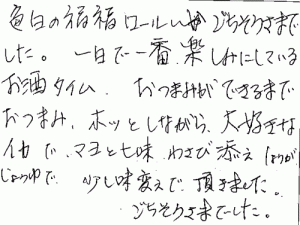 色白の福福ロールいか ごちそうさまで
した。 一日で一番、楽しみにしている
お酒タイム、 おつまみができるまで
おつまみ、ホッとしながら、大好きな
イカで、マヨと七味 わさび添え しょうが
じょうゆで 少し味変えで、頂きました。
ごちそうさまでした。